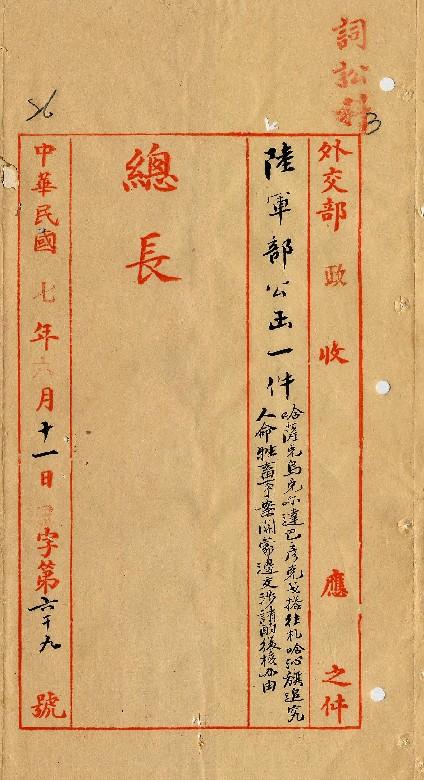 詞訟科
外交部 政 收 應 之件
陸軍部公函一件
哈薩克烏克尔達巴彥克 往札哈沁旗追究
人命牲畜事案關蒙邊交涉請酌復核辦由
總長
中華民國七年六月十一日 字第 號